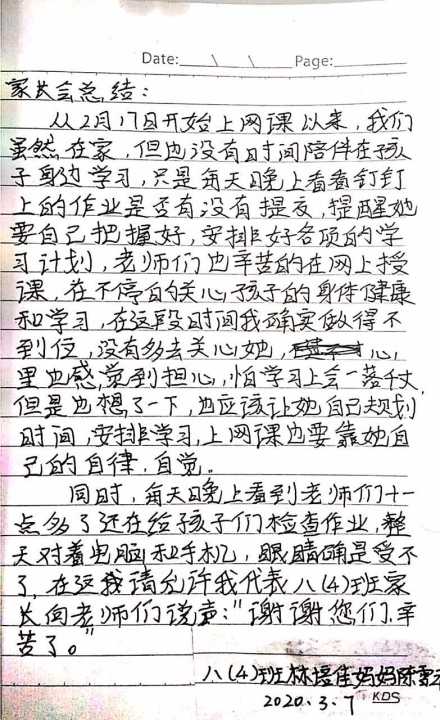 Date: \ \ Page:
家长会总结：
从2月17日开始上网课以来，我们
虽然在家，但也没有时间陪伴在孩
子身边学习，只是每天晚上看看钉钉
上的作业是否有没有提交，提醒她
要自己把握好，安排好各项的学
习计划，老师们也辛苦的在网上授
课，在不停的关心孩子的身体健康
和学习，在这段时间我确实做得不
到位，没有多去关心她，心，
里也感觉到担心，怕学习上会一落千丈，
但是也想了一下，也应该让她自己规划
时间，安排学习，上网课也要靠她自
己的自律，自觉。
同时，每天晚上看到老师们十一
点多了还在给孩子们检查作业，整
天对着电脑和手机，眼睛确是受不
了，在这我请允许我代表八(4)班家
长向老师们说声：“谢谢您们，辛
苦了。”
八(4)班林培佳妈妈陈
2020.3.7 KDS